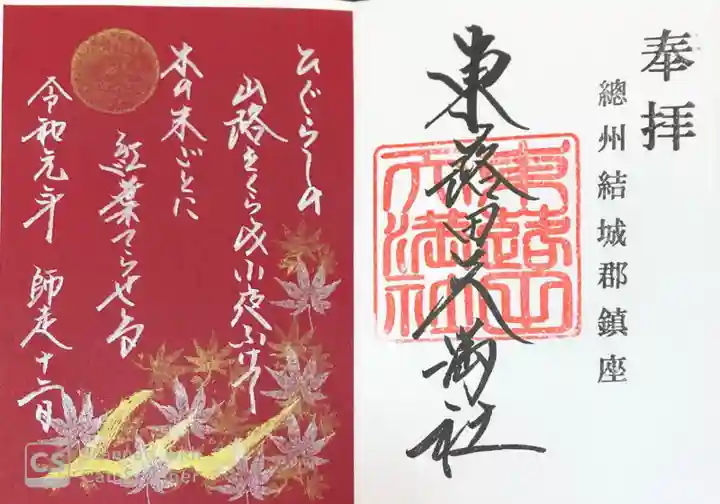 奉拝
總州結城郡鎮座
東蕗田天満社
東蕗田
天満社
ひぐらしの
山路をくらみ小夜ふけて
木の末ごとに
紅葉てらせる
令和元年 師走十二日
CS